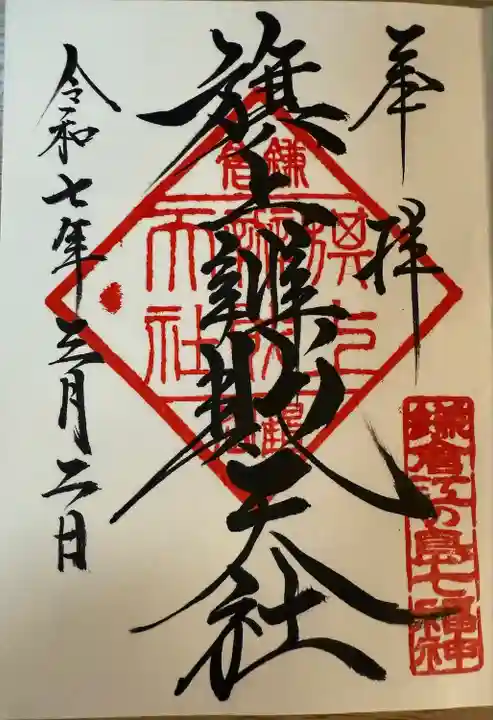 奉拝
旗上辨財天社
令和七年三月二日
鎌倉
旗上
天社
鎌倉江の島七福神